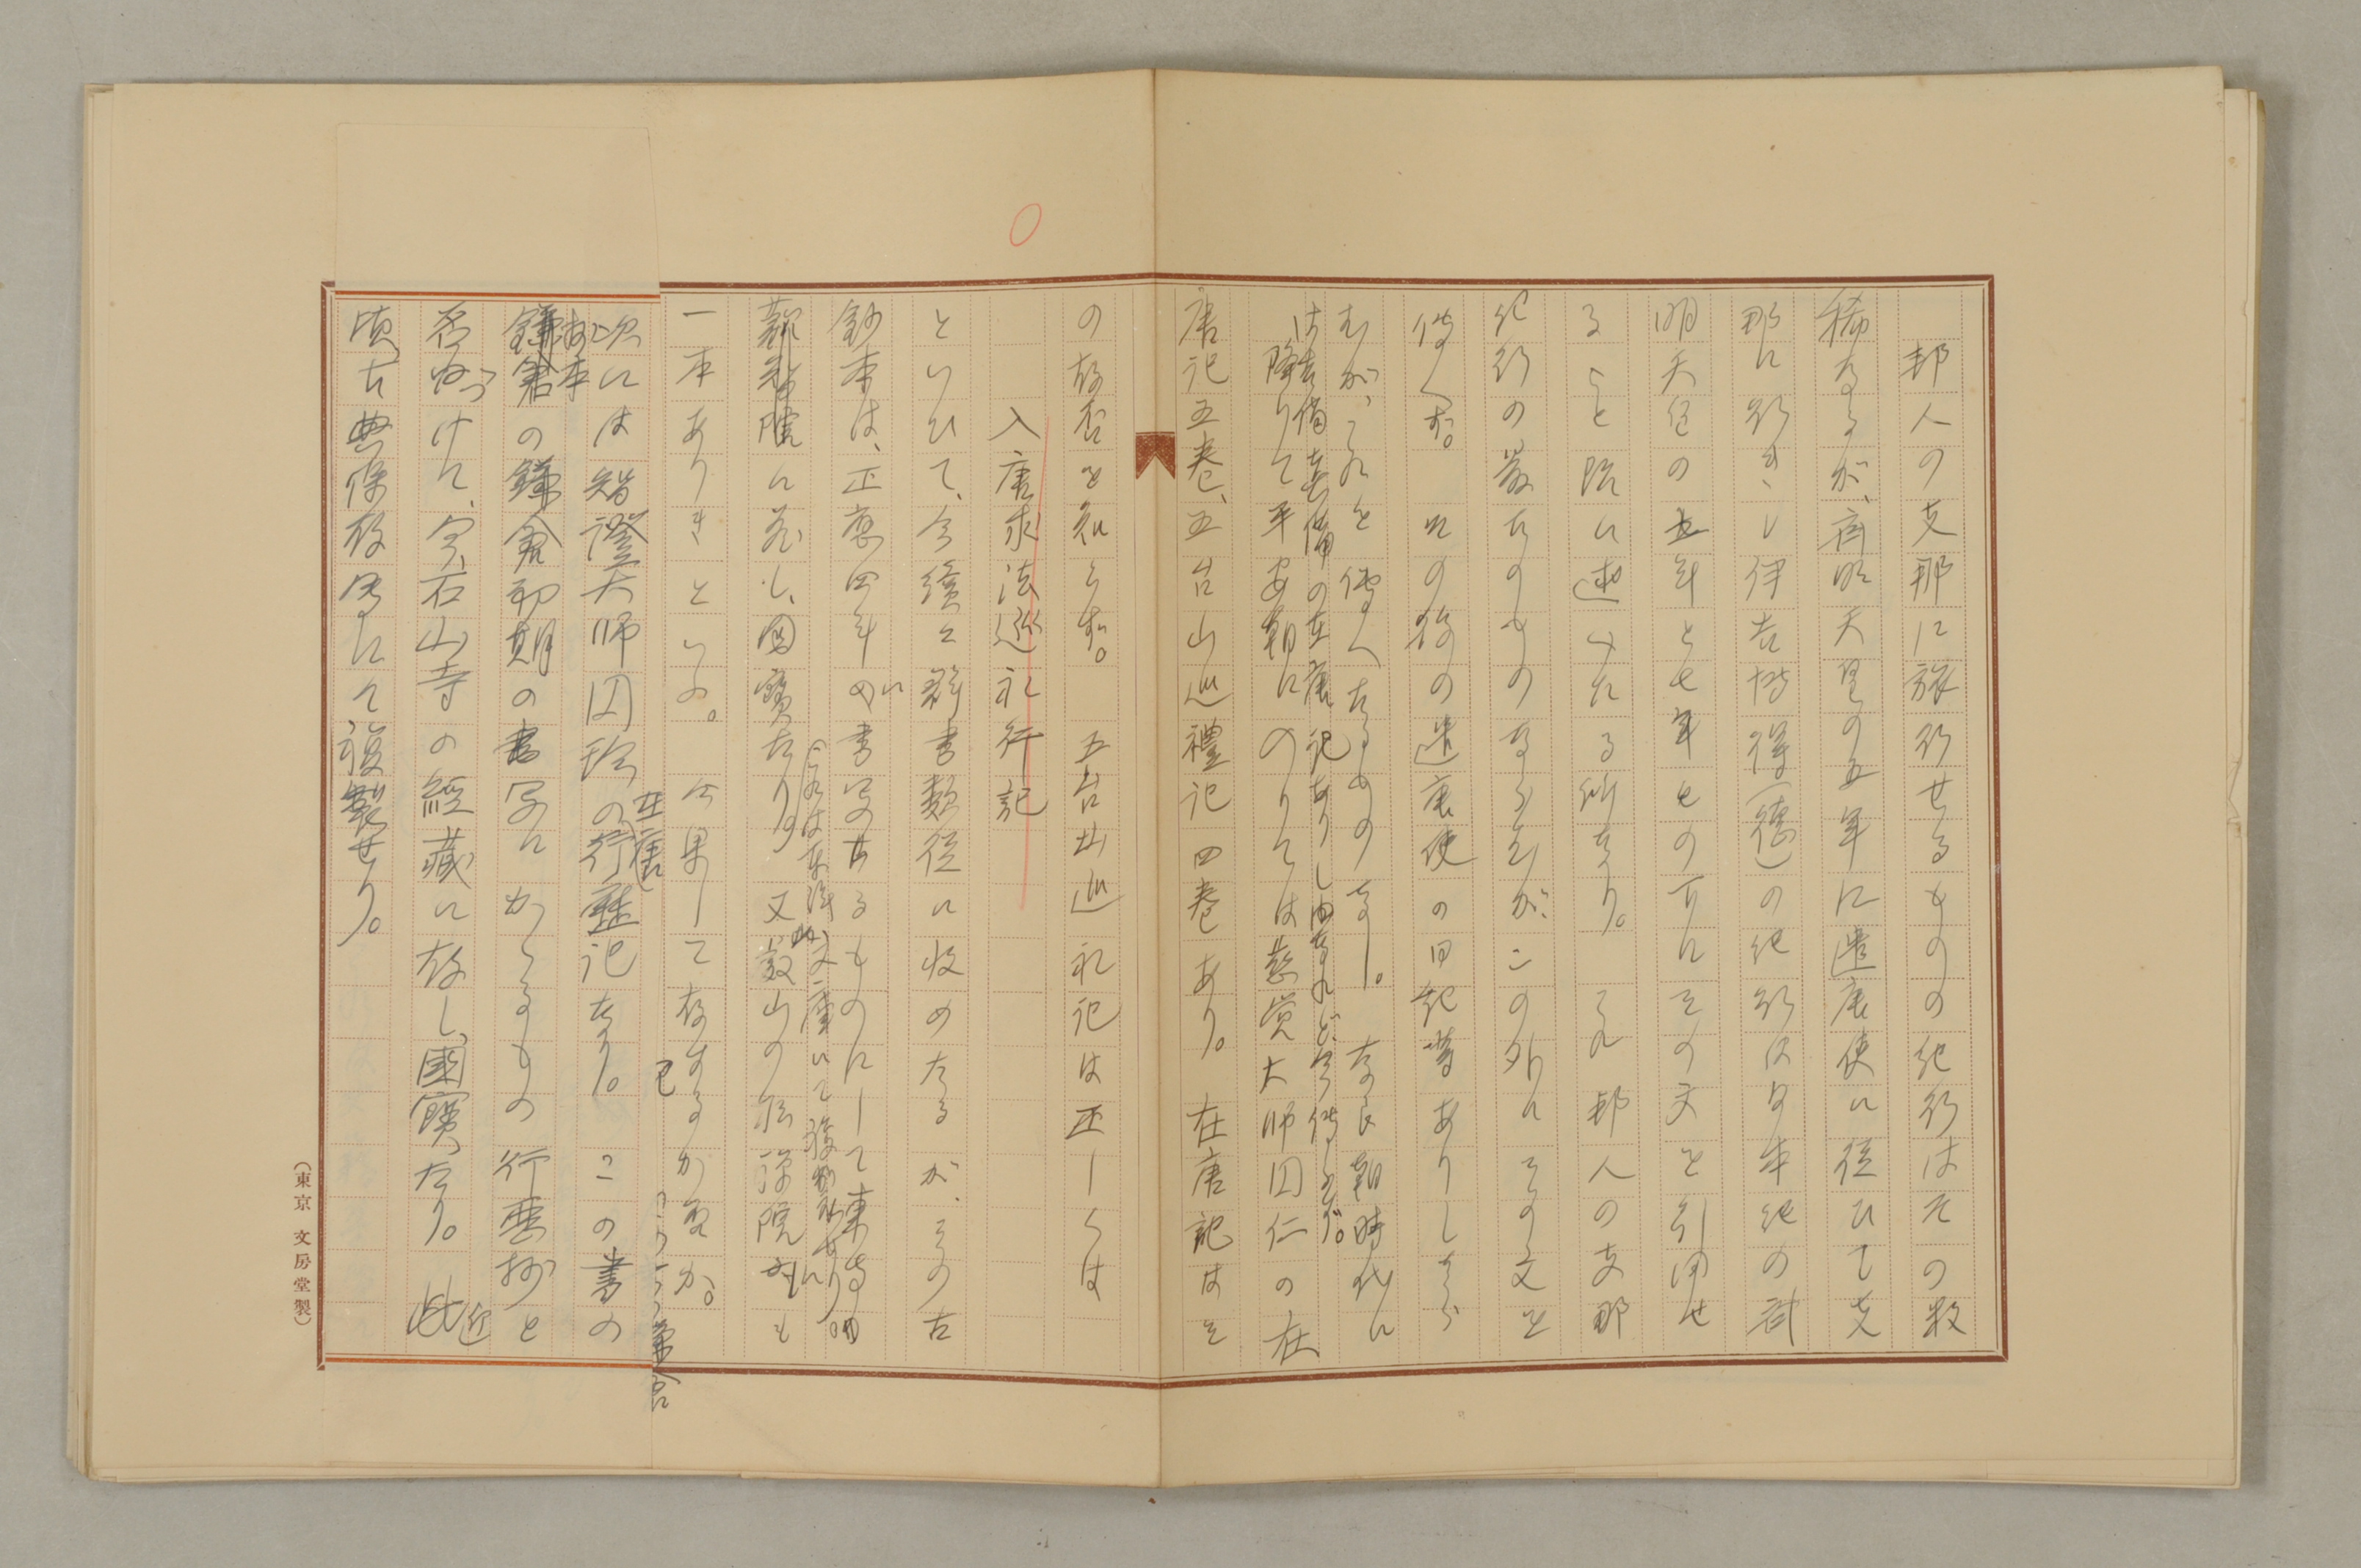 邦人の支那に旅行せるものの紀行はその数
稀なるが、斉明天皇の五年に遣唐使に従ひて支
那に行きし伊吉博得(徳)の紀行は日本紀の斉
明天皇の五年と七年との下にその文を引用せ
ること既に述べたる所なり。これ邦人の支那
紀行の最古のものなるが、この外にその文を
傳へず。その後の遣唐使の日記等ありしなら
むが、これを傳へたるもの無し。奈良朝時代に
は吉備真備の在唐記ありし由なれど、今傳らず。
降りて平安朝にのりては慈覚大師円仁の在
唐記五巻、五台山巡禮記四巻あり。在唐記はそ
の存否を知らず。五台山巡礼記は正しくは
入唐求法巡礼行記
といひて、今続々群書類従に収めたるが、その古
鈔本は、正應四年の書写せるものにして東寺
(これは東洋文庫にて複製せり。)
観智院に蔵し、国寳たり。又叡山の松禅院にも
一本ありきといふ。今果して存するか否か。
次には智證大師円珍の行歴記なり。この書の
在唐
抄本
鎌倉初期の書写にかゝるもの行歴抄と
名づけて、今、石山寺の經藏に存し、國寳たり。近
頃古典保存會にて複製せり。
(東京 文房堂製)